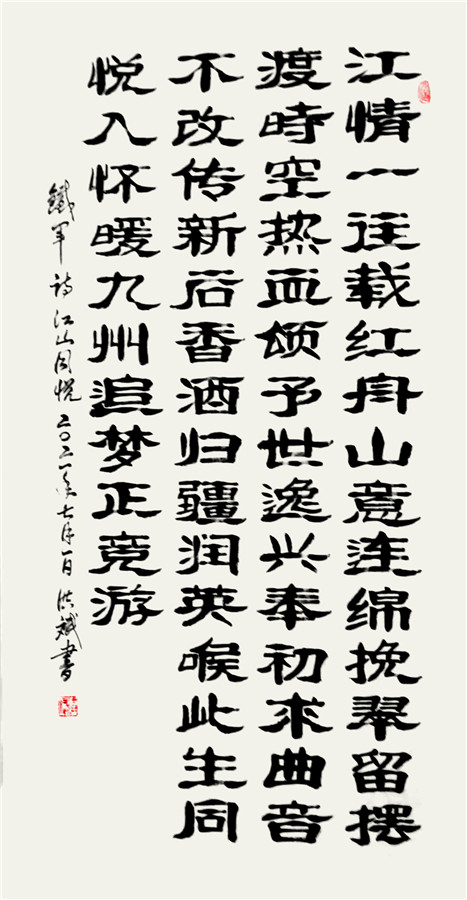 江情一往载红舟山意连绵挽翠留摆
渡時空热血颂予世逸兴奉初求曲音
不改传新后香酒归疆润英喉此生同
悦入怀暖九州追梦正竞游
鐵军诗江山同悦二〇二一年七月一日洪斌書